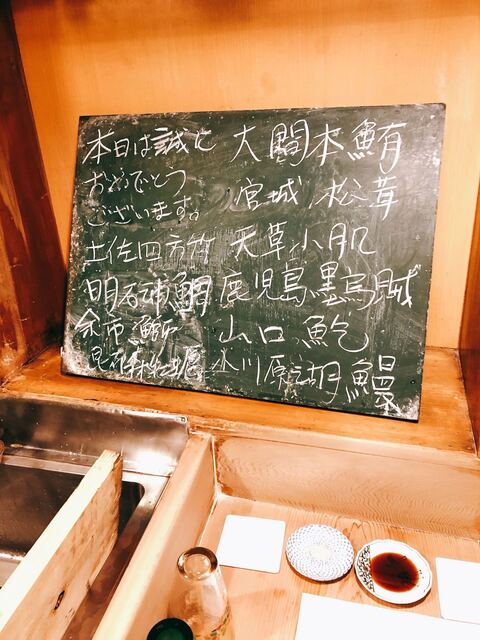 本日は誠に
おめでとう
ございます。
土佐四方竹
明石浦鯛
余市
大間本鮪
宮城 松茸
天草小肌
鹿児島墨烏賊
山口 鮑
氷川原湖鰻